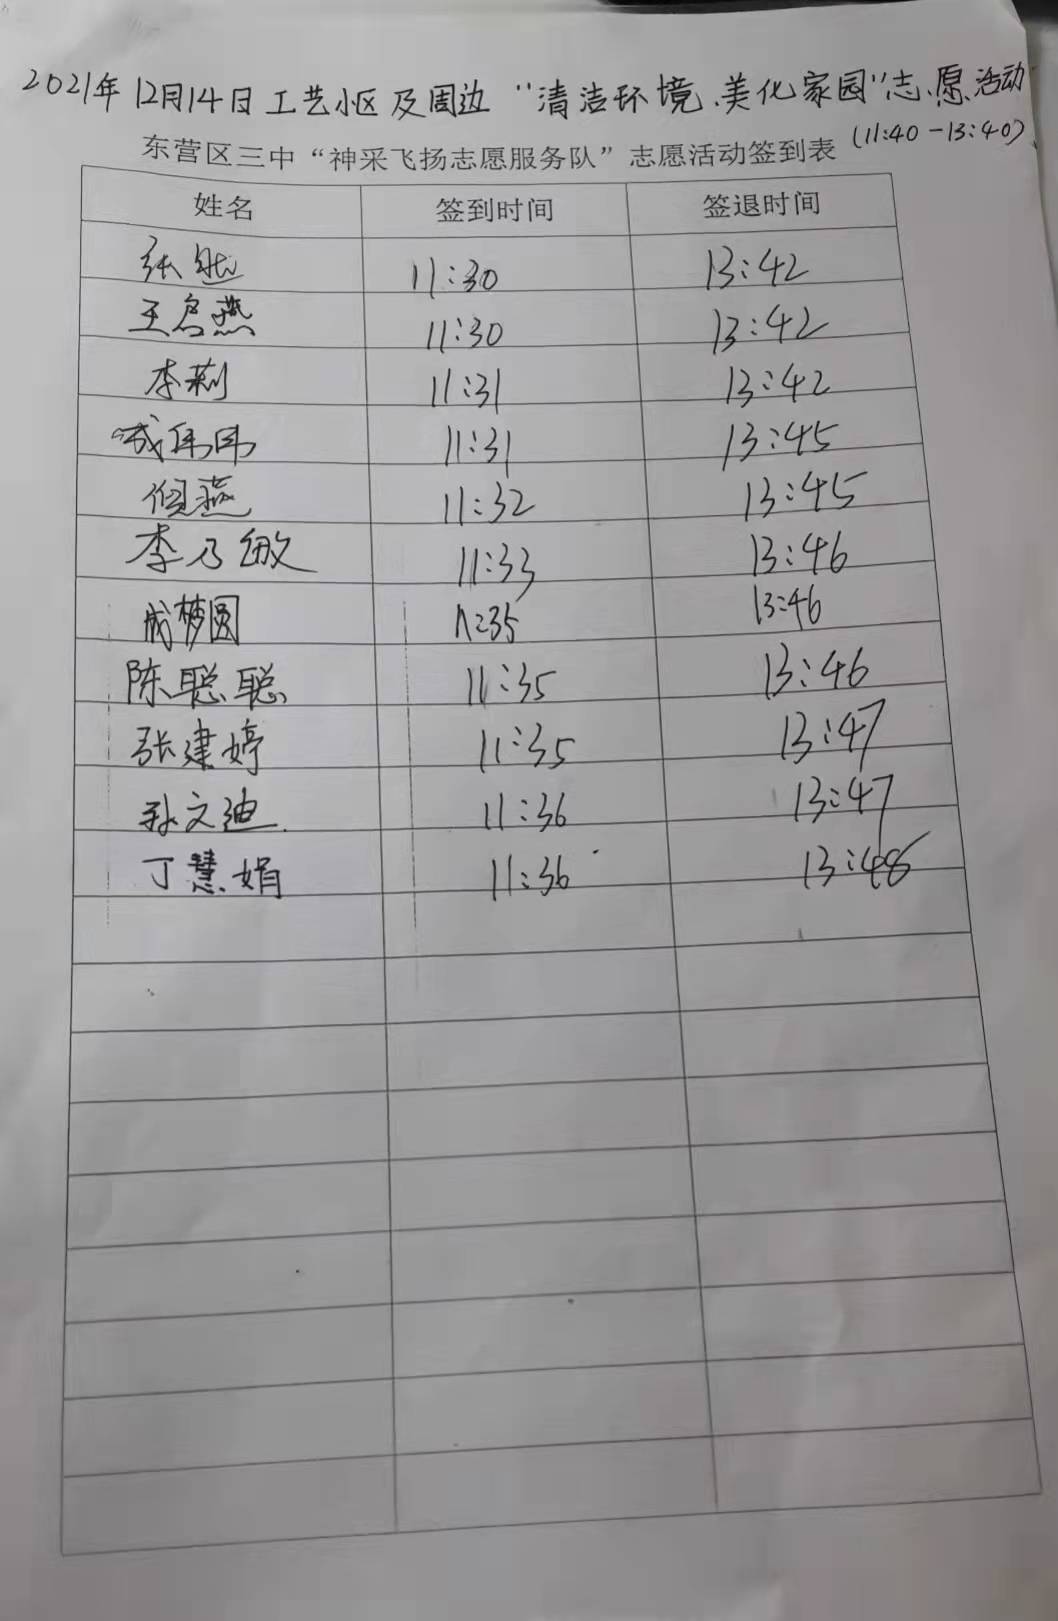 2021年12月14日工艺小区及周边“清洁环境、美化家园”志愿活动
(11:40-13:40)
东营区三中“神采飞扬志愿服务队”志愿活动签到表
姓名 签到时间 签退时间
张 11:30 13:42
王 燕 11:30 13:42
李莉 11:31 13:42
伟伟 11:31 13:45
倪燕 11:32 13:45
李乃敏 11:33 13:46
成梦圆 11:35 13:46
陈聪聪 11:35 13:46
张建婷 11:35 13:47
孙文迪 11:36 13:47
丁慧娟 11:36 13:48